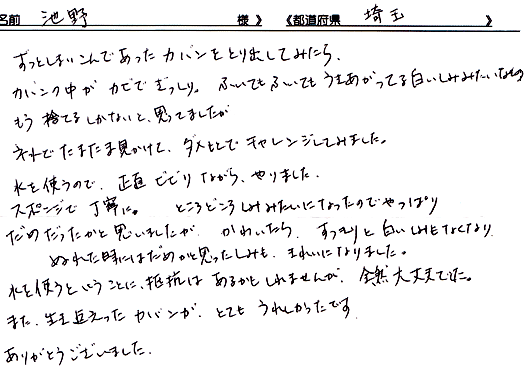 名前 池野 様 》 《都道府県 埼玉 》
ずっとしまいこんであった カバンをとり出してみたら、
カバンの中が カビで ぎっしり。 ふいても ふいても うきあがってる白いしみみたいなもの
もう 捨てるしかないと、思ってましたが
ネットで たまたま見かけて、ダメもとで チャレンジしてみました。
水を使うので、正直 ビビリながら、やりました。
スポンジで 丁寧に。 ところどころしみみたいになったのでやっぱり
だめだったかと思いましたが、かわいたら、すっきりと白いしみもなくなり
ぬれた時にはだめかと思ったしみも、きれいになりました。
水を使うということに、抵抗は あるかもしれませんが、全然大丈夫でした。
また、生き返ったカバンが、とても うれしかったです
ありがとうございました。